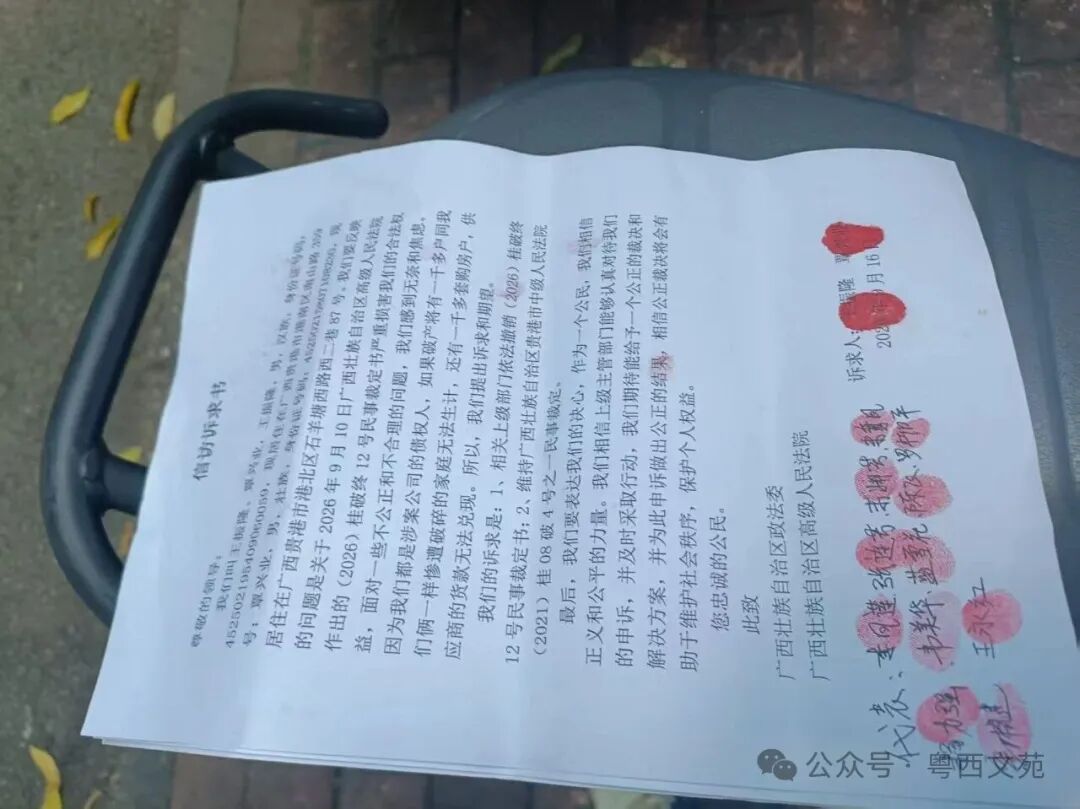 信访诉求书
尊敬的领导:
我们叫王振隆、覃兴业,王振隆,男,汉族,身份证号码:
居住在广西贵港市港北区石羊塘西路西二巷87号。我们要反映
的问题是关于2026年9月10日广西壮族自治区高级人民法院
作出的(2026)桂破终12号民事裁定书严重损害我们的合法权
益,面对一些不公正和不合理的问题,我们感到无奈和焦虑。
因为我们都是涉案公司的债权人,如果破产将有一千多户同我
们俩一样惨遭破碎的家庭无法生计,还有一千多套购房户,供
应商的货款无法兑现。所以,我们提出诉求和期望。
我们的诉求是:1、相关上级部门依法撤销(2026)桂破终
12号民事裁定书;2、维持广西壮族自治区贵港市中级人民法院
(2021)桂08破4号之一民事裁定。
最后,我们要表达我们的决心,作为一个公民,我们相信
正义和公平的力量。我们相信上级主管部门能够认真对待我们
的申诉,并及时采取行动,我们期待能给予一个公正的裁决和
解决方案,并为此申诉做出公正的结果,相信公正裁决将会有
助于维护社会秩序,保护个人权益。
您忠诚的公民。
此致
广西壮族自治区政法委
广西壮族自治区高级人民法院
诉求人
振隆
9月16日
代表:
王永红
公众号·粤西文苑